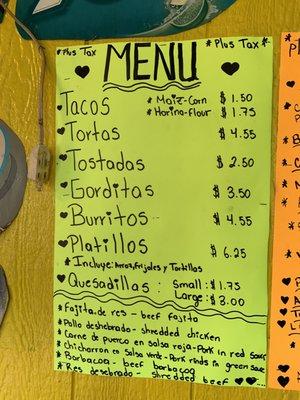 *Plus Tax MENU *Plus Tax*
Tacos * Maiz-Corn $1.50
* Harina-flour $1.75
Tortas $4.55
Tostadas $2.50
Gorditas $3.50
Burritos $4.55
Platillos $6.25
* Incluye: Arroz, frijoles y Tortillas
Quesadillas: Small: $1.75
Large: $3.00
* Fajita de res - beef fajita
* Pollo deshebrado - shredded chicken
* Carne de puerco en salsa roja - Pork in red sauce
* Chicharron en salsa verde - Pork rinds in green sauce
* Barbacoa - beef barbacoa
* Res desebrado - shredded beef